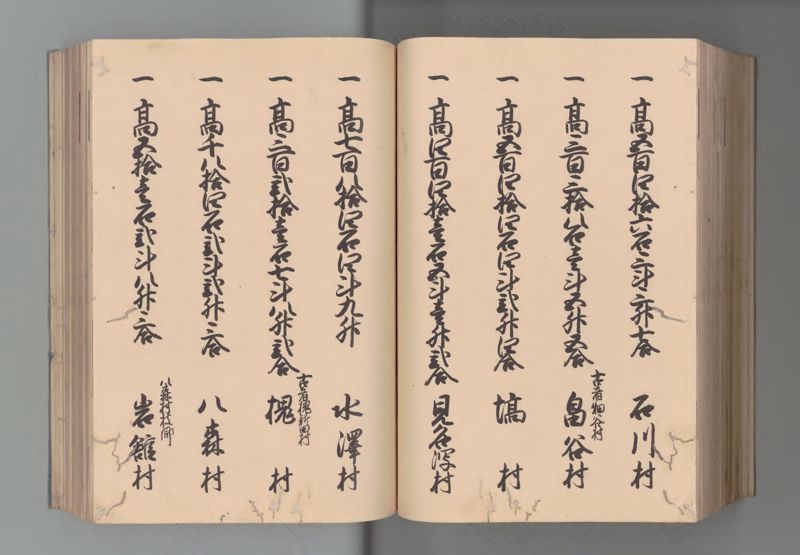 一 髙五百四拾六石三斗三升七合 石川村
一 髙三百三拾八石壱斗五升五合 古者畑谷村 畠谷村
一 髙五百四拾四石四斗弐升四合 塙村
一 髙四百四拾壱石五斗壱升弐合 目名潟村
一 髙七百八拾四石四斗九升 水澤村
一 髙三百弐拾壱石七斗八升弐合 古者槐新田村 槐村
一 髙千八拾四石弐斗弐升三合 八森村
一 髙五拾壱石弐斗八升三合 八森村枝郷 岩舘村